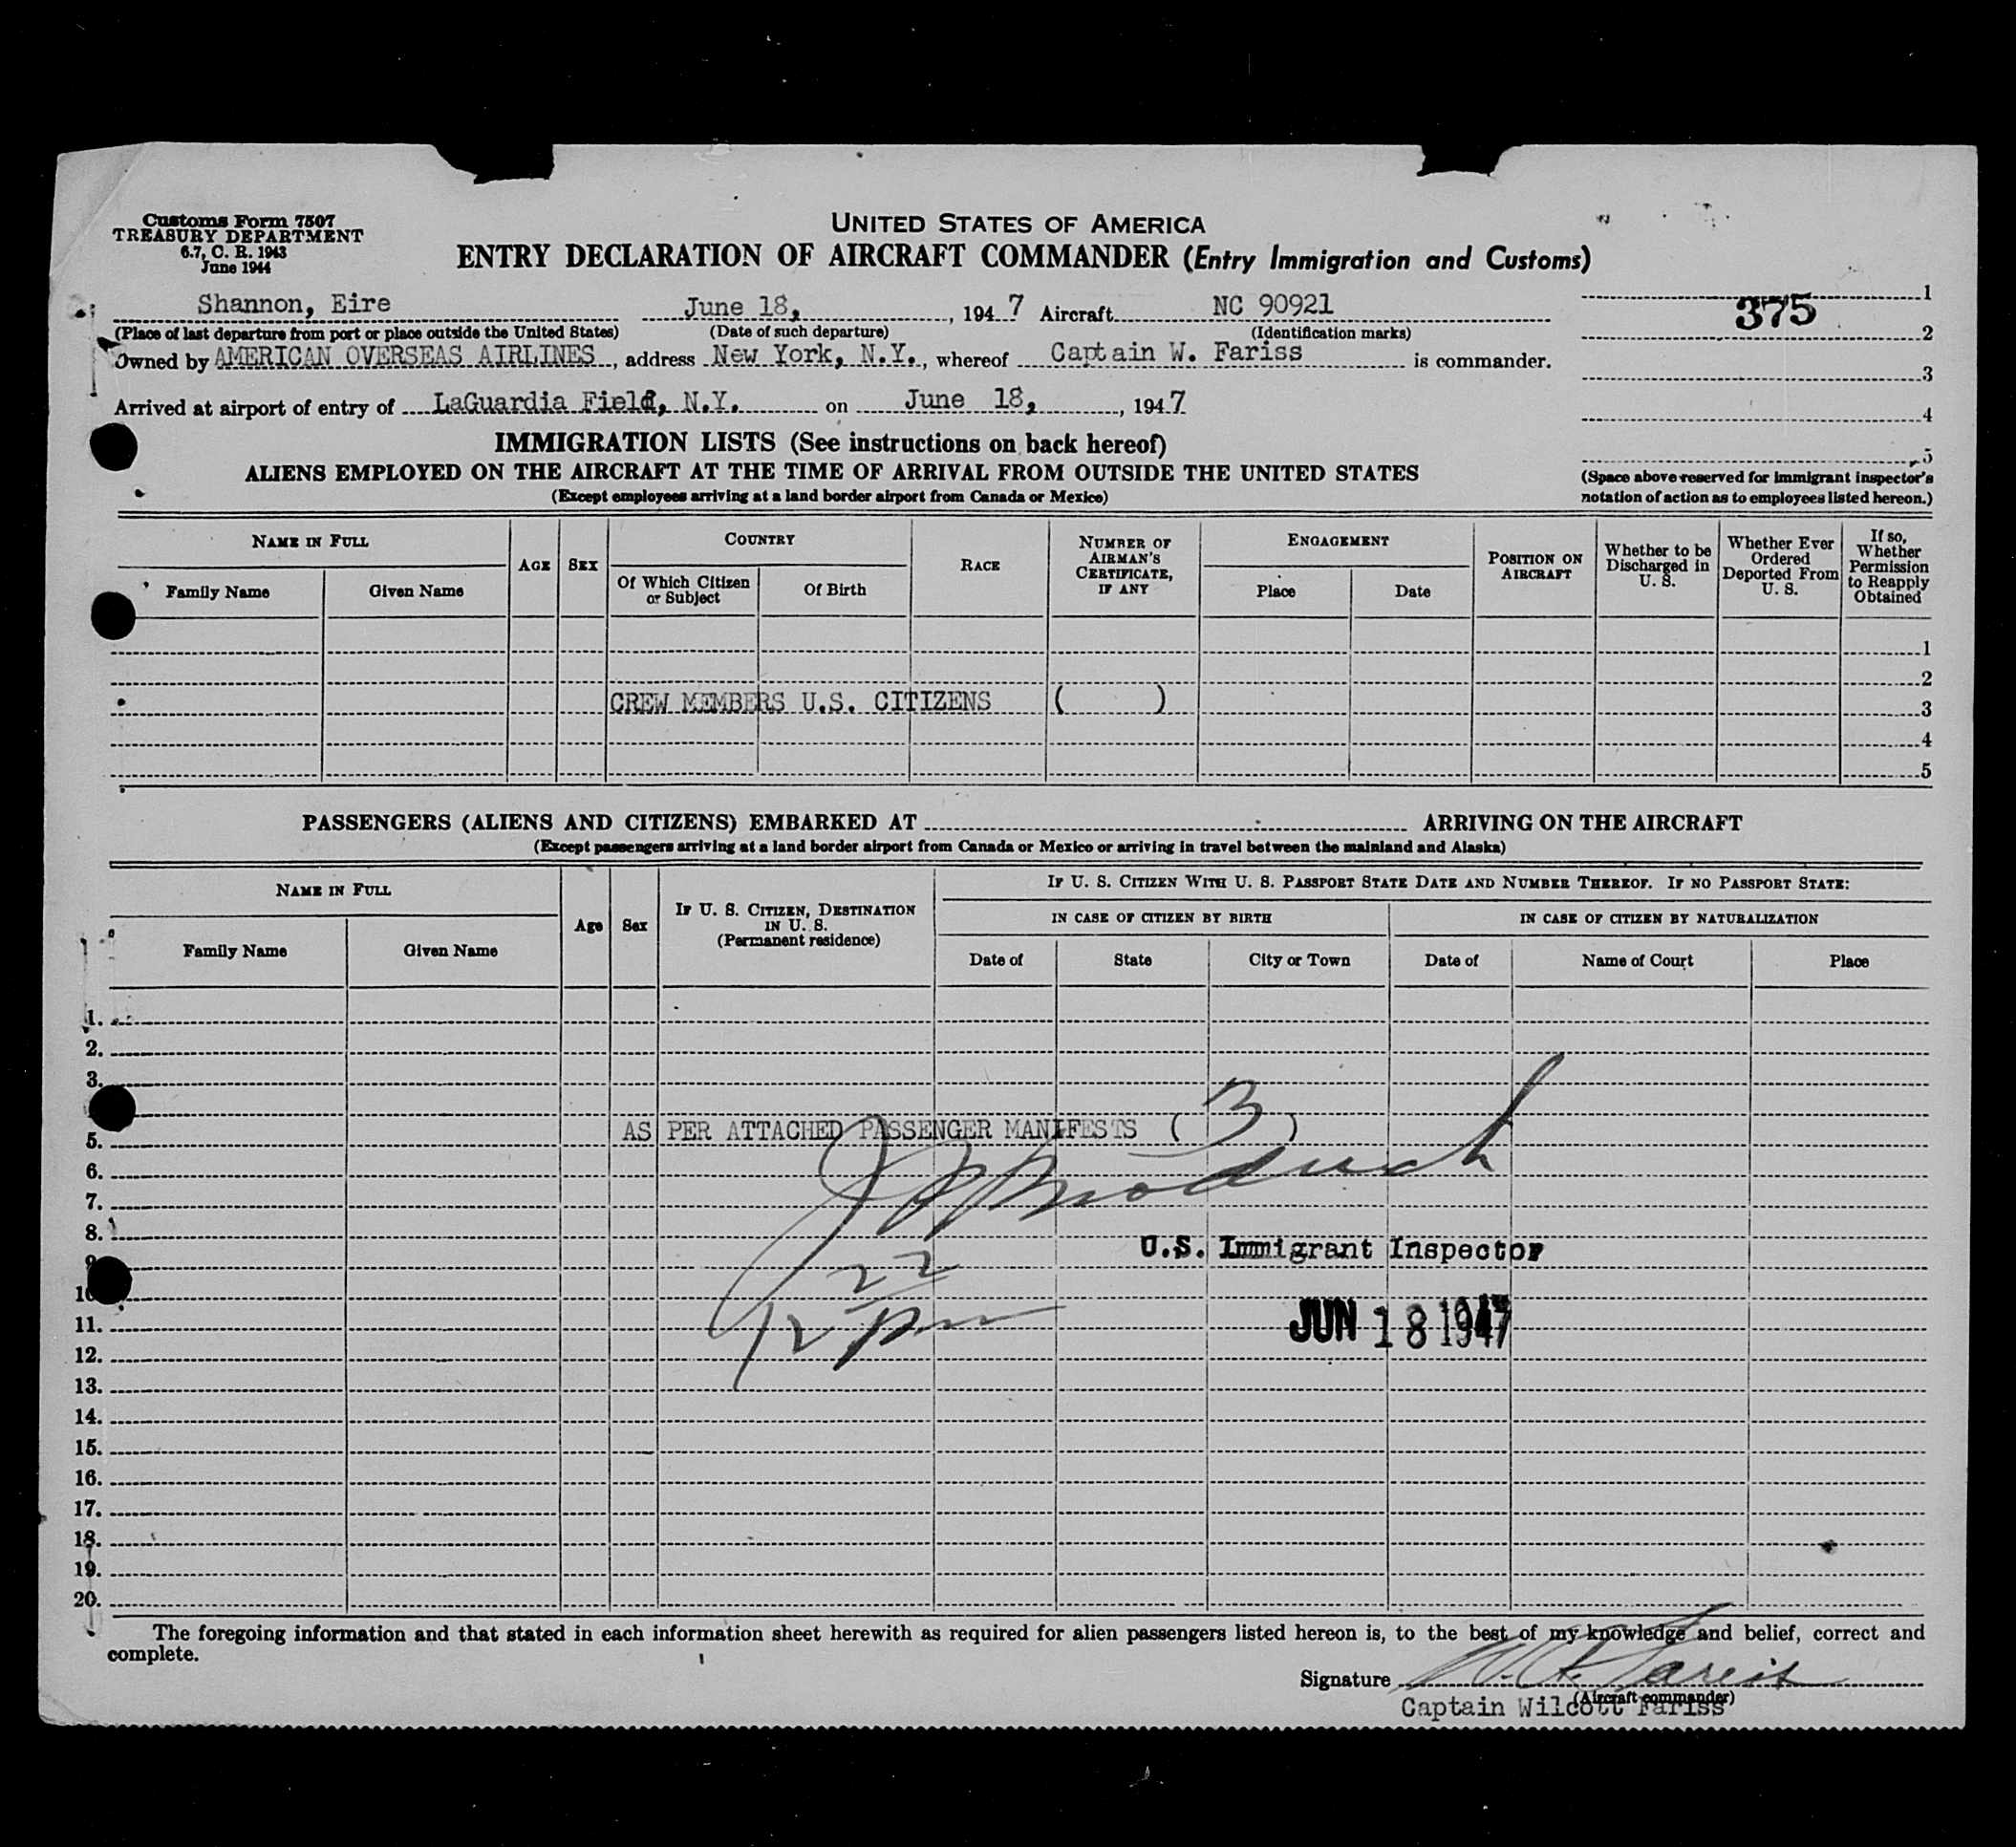 Customs Form 7507
TREASURY DEPARTMENT
6.7, C. R. 1943
June 1944
UNITED STATES OF AMERICA
ENTRY DECLARATION OF AIRCRAFT COMMANDER (Entry Immigration and Customs)
Shannon, Eire June 18, , 194 7 Aircraft NC 90921
(Place of last departure from port or place outside the United States) (Date of such departure) (Identification marks)
Owned by AMERICAN OVERSEAS AIRLINES , address New York, N.Y. , whereof Captain W. Fariss is commander.
Arrived at airport of entry of LaGuardia Field, N.Y. on June 18, , 194 7
1
375
2
3
4
5
(Space above reserved for immigrant inspector's
notation of action as to employees listed hereon.)
IMMIGRATION LISTS (See instructions on back hereof)
ALIENS EMPLOYED ON THE AIRCRAFT AT THE TIME OF ARRIVAL FROM OUTSIDE THE UNITED STATES
(Except employees arriving at a land border airport from Canada or Mexico)
NAME IN FULL
Family Name
Given Name
AGE
SEX
COUNTRY
Of Which Citizen
or Subject
Of Birth
RACE
NUMBER OF
AIRMAN'S
CERTIFICATE,
IF ANY
ENGAGEMENT
Place
Date
POSITION ON
AIRCRAFT
Whether to be
Discharged in
U. S.
Whether Ever
Ordered
Deported From
U. S.
If so,
Whether
Permission
to Reapply
Obtained
1
2
CREW MEMBERS U.S. CITIZENS ( ) 3
4
5
PASSENGERS (ALIENS AND CITIZENS) EMBARKED AT ARRIVING ON THE AIRCRAFT
(Except passengers arriving at a land border airport from Canada or Mexico or arriving in travel between the mainland and Alaska)
NAME IN FULL
Family Name
Given Name
Age
Sex
IF U. S. CITIZEN, DESTINATION
IN U. S.
(Permanent residence)
IF U. S. CITIZEN WITH U. S. PASSPORT STATE DATE AND NUMBER THEREOF. IF NO PASSPORT STATE:
IN CASE OF CITIZEN BY BIRTH
IN CASE OF CITIZEN BY NATURALIZATION
Date of
State
City or Town
Date of
Name of Court
Place
1.
2.
3.
AS PER ATTACHED PASSENGER MANIFESTS ( 3 )
5.
6.
7.
8.
U.S. Immigrant Inspector
9
22
10
12 pm
JUN 18 1947
11.
12.
13.
14.
15.
16.
17.
18.
19.
20.
The foregoing information and that stated in each information sheet herewith as required for alien passengers listed hereon is, to the best of my knowledge and belief, correct and
complete.
Signature
(Aircraft commander)
Captain Wilcott Fariss